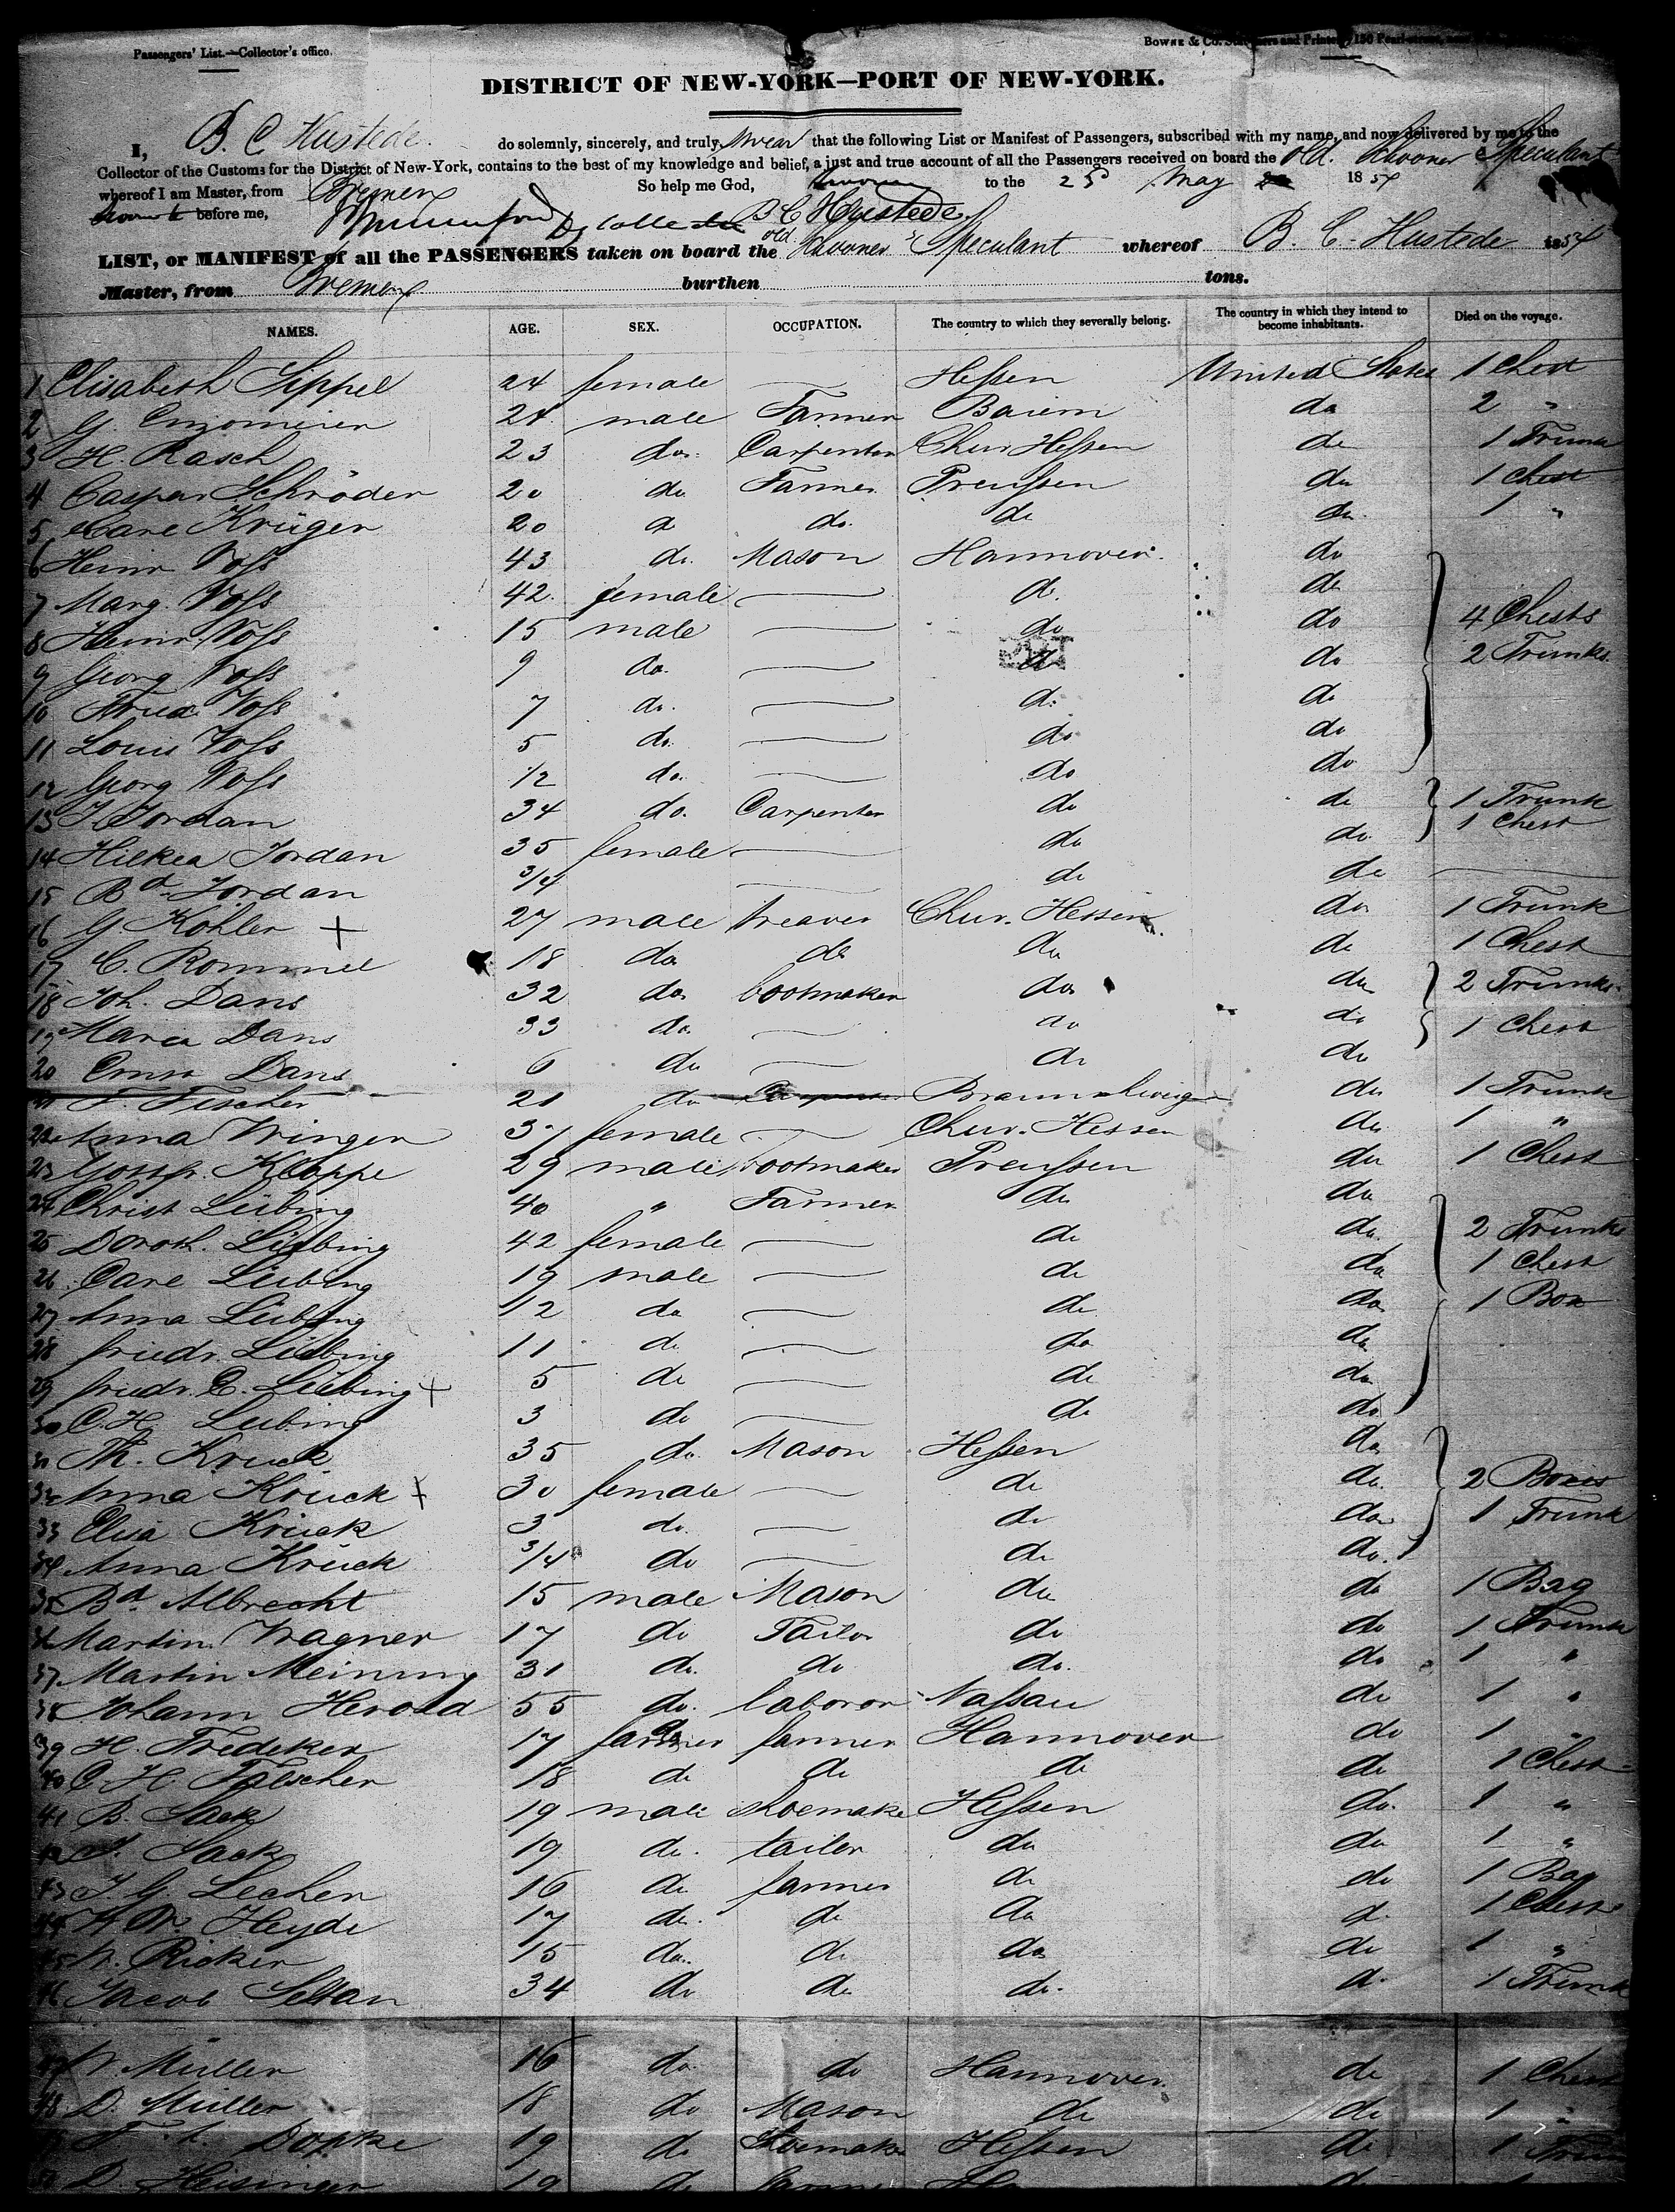 Passengers' List.—Collector's office.
BOWNE & Co. and Printers, 150 Pearl
DISTRICT OF NEW-YORK—PORT OF NEW-YORK.
I, B. C Hustede. do solemnly, sincerely, and truly swear that the following List or Manifest of Passengers, subscribed with my name, and now delivered by me to the
Collector of the Customs for the District of New-York, contains to the best of my knowledge and belief, a just and true account of all the Passengers received on board the old. Schooner Speculant
whereof I am Master, from Bremen So help me God, to the 25 May 1854
before me, B C Hustede
LIST, or MANIFEST of all the PASSENGERS taken on board the old. Schooner Speculant whereof B. C. Hustede 1854
Master, from Bremen burthen tons.
NAMES. AGE. SEX. OCCUPATION. The country to which they severally belong. The country in which they intend to become inhabitants. Died on the voyage.
1 Elisabeth Sippel 24 female — Hessen United States 1 Chest
2 G. 24 male Farmer Baiern do 2 "
3 H Rasch 23 do. Carpenter Chur Hessen do 1 Trunk
4 Caspar Schröder 20 do Farmer Preussen do 1 Chest
5 Carl Krüger 20 do do. do do. 1 "
6 Heinr Voss 43 do. Mason Hannover. do
7 Marg. Voss 42. female — do. do
8 Heinr. Voss 15 male — do do 4 Chests
9 Georg Voss 9 do. — do do 2 Trunks
10 Voss 7 do. — do. do
11 Louis Voss 5 do. — do do
12 Georg Voss 1/2 do. — do do
13 J Jordan 34 do. Carpenter do do 1 Trunk
1 Chest
14 Hilkea Jordan 35 female — do do.
15 Bd Jordan 3/4 — do do —
16 G Kohler + 27 male weaver Chur. Hessen do 1 Trunk
17 C. Rommel 18 do do do do 1 Chest
18 Joh. Dans 32 do bootmaker do do 2 Trunks
19 Maria Dans 33 do. — do do 1 Chest
20 Ernst Dans 6 do — do do
21 F. Fischer 21 do Carpenter Braunschweig do 1 Trunk
22 Anna Winger 31 female — Chur. Hessen do 1 "
23 Kloppe 29 male bootmaker Preussen do 1 Chest
24 Christ Lübing 40 " Farmer do do
25 Doroth. Lübing 42 female — do do. 2 Trunks
26 Carl Lübing 19 male — do do 1 Chest
27 Anna Lübing 12 do — do do 1 Box
28 friedr. Lübing 11 do — do do
29 friedr. C. Lübing + 5 do — do do
30 C. H. Lübing 3 do — do do.
31 Th. Krück 35 do. Mason Hessen do
32 Anna Krück + 30 female — do do. 2 Boxes
33 Elisa Krück 3 do. — do do 1 Trunk
34 Anna Krück 3/4 do — do do.
35 Bd. Albrecht 15 male Mason do do 1 Bag
36 Martin Wagner 17 do Tailor do do 1 Trunk
37 Martin Meining 31 do. do do. do 1 "
38 Johann Herold 55 do. laboror Nassau do 1 "
39 H. Fredeker 17 do farmer Hannover do 1 "
40 C. H. 18 do do do do 1 Chest
41 B. Sack 19 male shoemaker Hessen do. 1 "
42 Sack 19 do. tailor do do 1 "
43 J. G. Lecher 16 do farmer do do 1 Bag
44 Heyde 17 do. do do do. 1 Chest
45 Ricker 15 do. do do do 1 "
46 Jacob Seltan 34 do do do. do. 1 Trunk
47 Müller 16 do do Hannover. do 1 Chest
48 D. Müller 18 do Mason do do 1 "
Dopke 19 do Shoemaker Hessen do 1
D. Heisinger 19 do